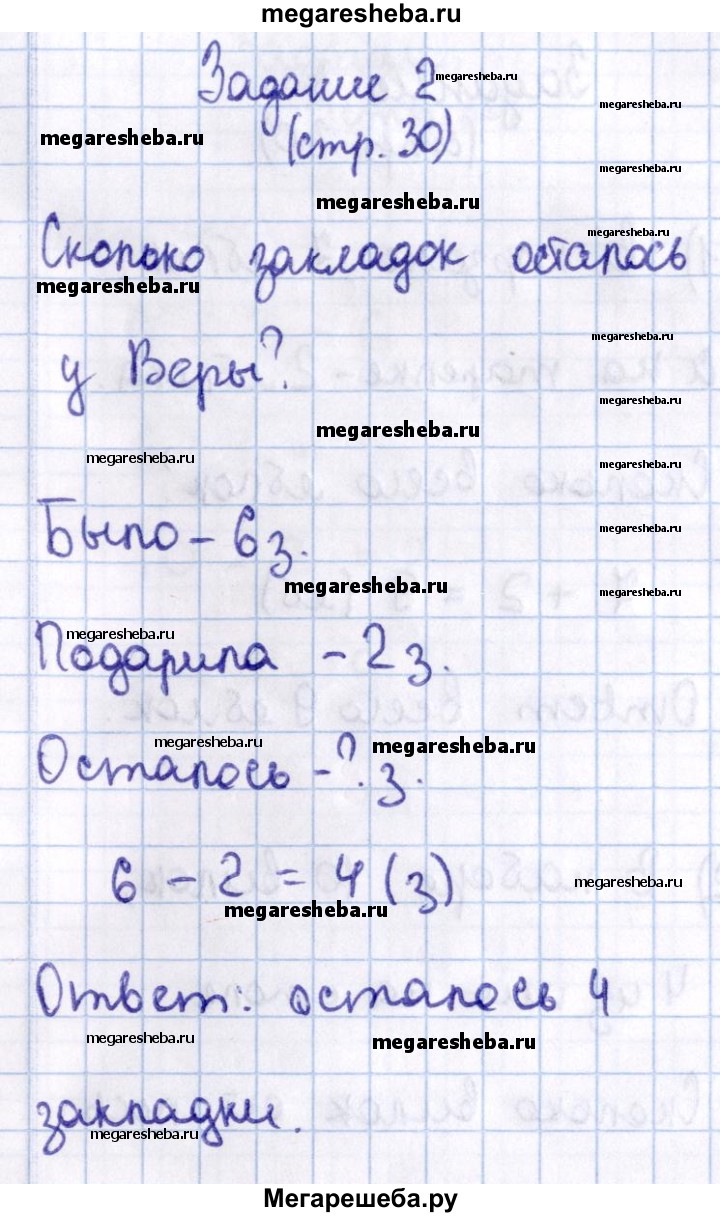 megaresheba.ru
Задание 2 megaresheba.ru
megaresheba.ru
megaresheba.ru
(стр. 30)
megaresheba.ru
megaresheba.ru
megaresheba.ru
Сколько закладок осталось
megaresheba.ru
megaresheba.ru
у Веры?
megaresheba.ru
megaresheba.ru
megaresheba.ru
megaresheba.ru
Было - 6 з.
megaresheba.ru
megaresheba.ru
megaresheba.ru
Подарила - 2 з.
megaresheba.ru
megaresheba.ru
megaresheba.ru
Осталось - ? з.
6 - 2 = 4 (з)
megaresheba.ru
megaresheba.ru
Ответ: осталось 4
megaresheba.ru
megaresheba.ru
закладки.
megaresheba.ru
Мегарешеба.ру